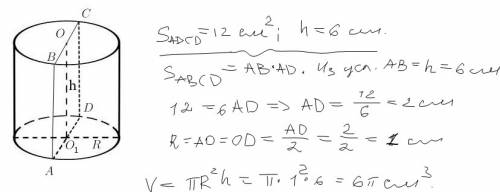 C
O
B
h
D
O₁
R
A
S_ADCD = 12 см²; h = 6 см.
S_ABCD = AB·AD. Из усл. AB = h = 6 см
12 = 6AD => AD = 12/6 = 2 см
R = AO = OD = AD/2 = 2/2 = 1 см
V = πR²h = π·1²·6 = 6π см³